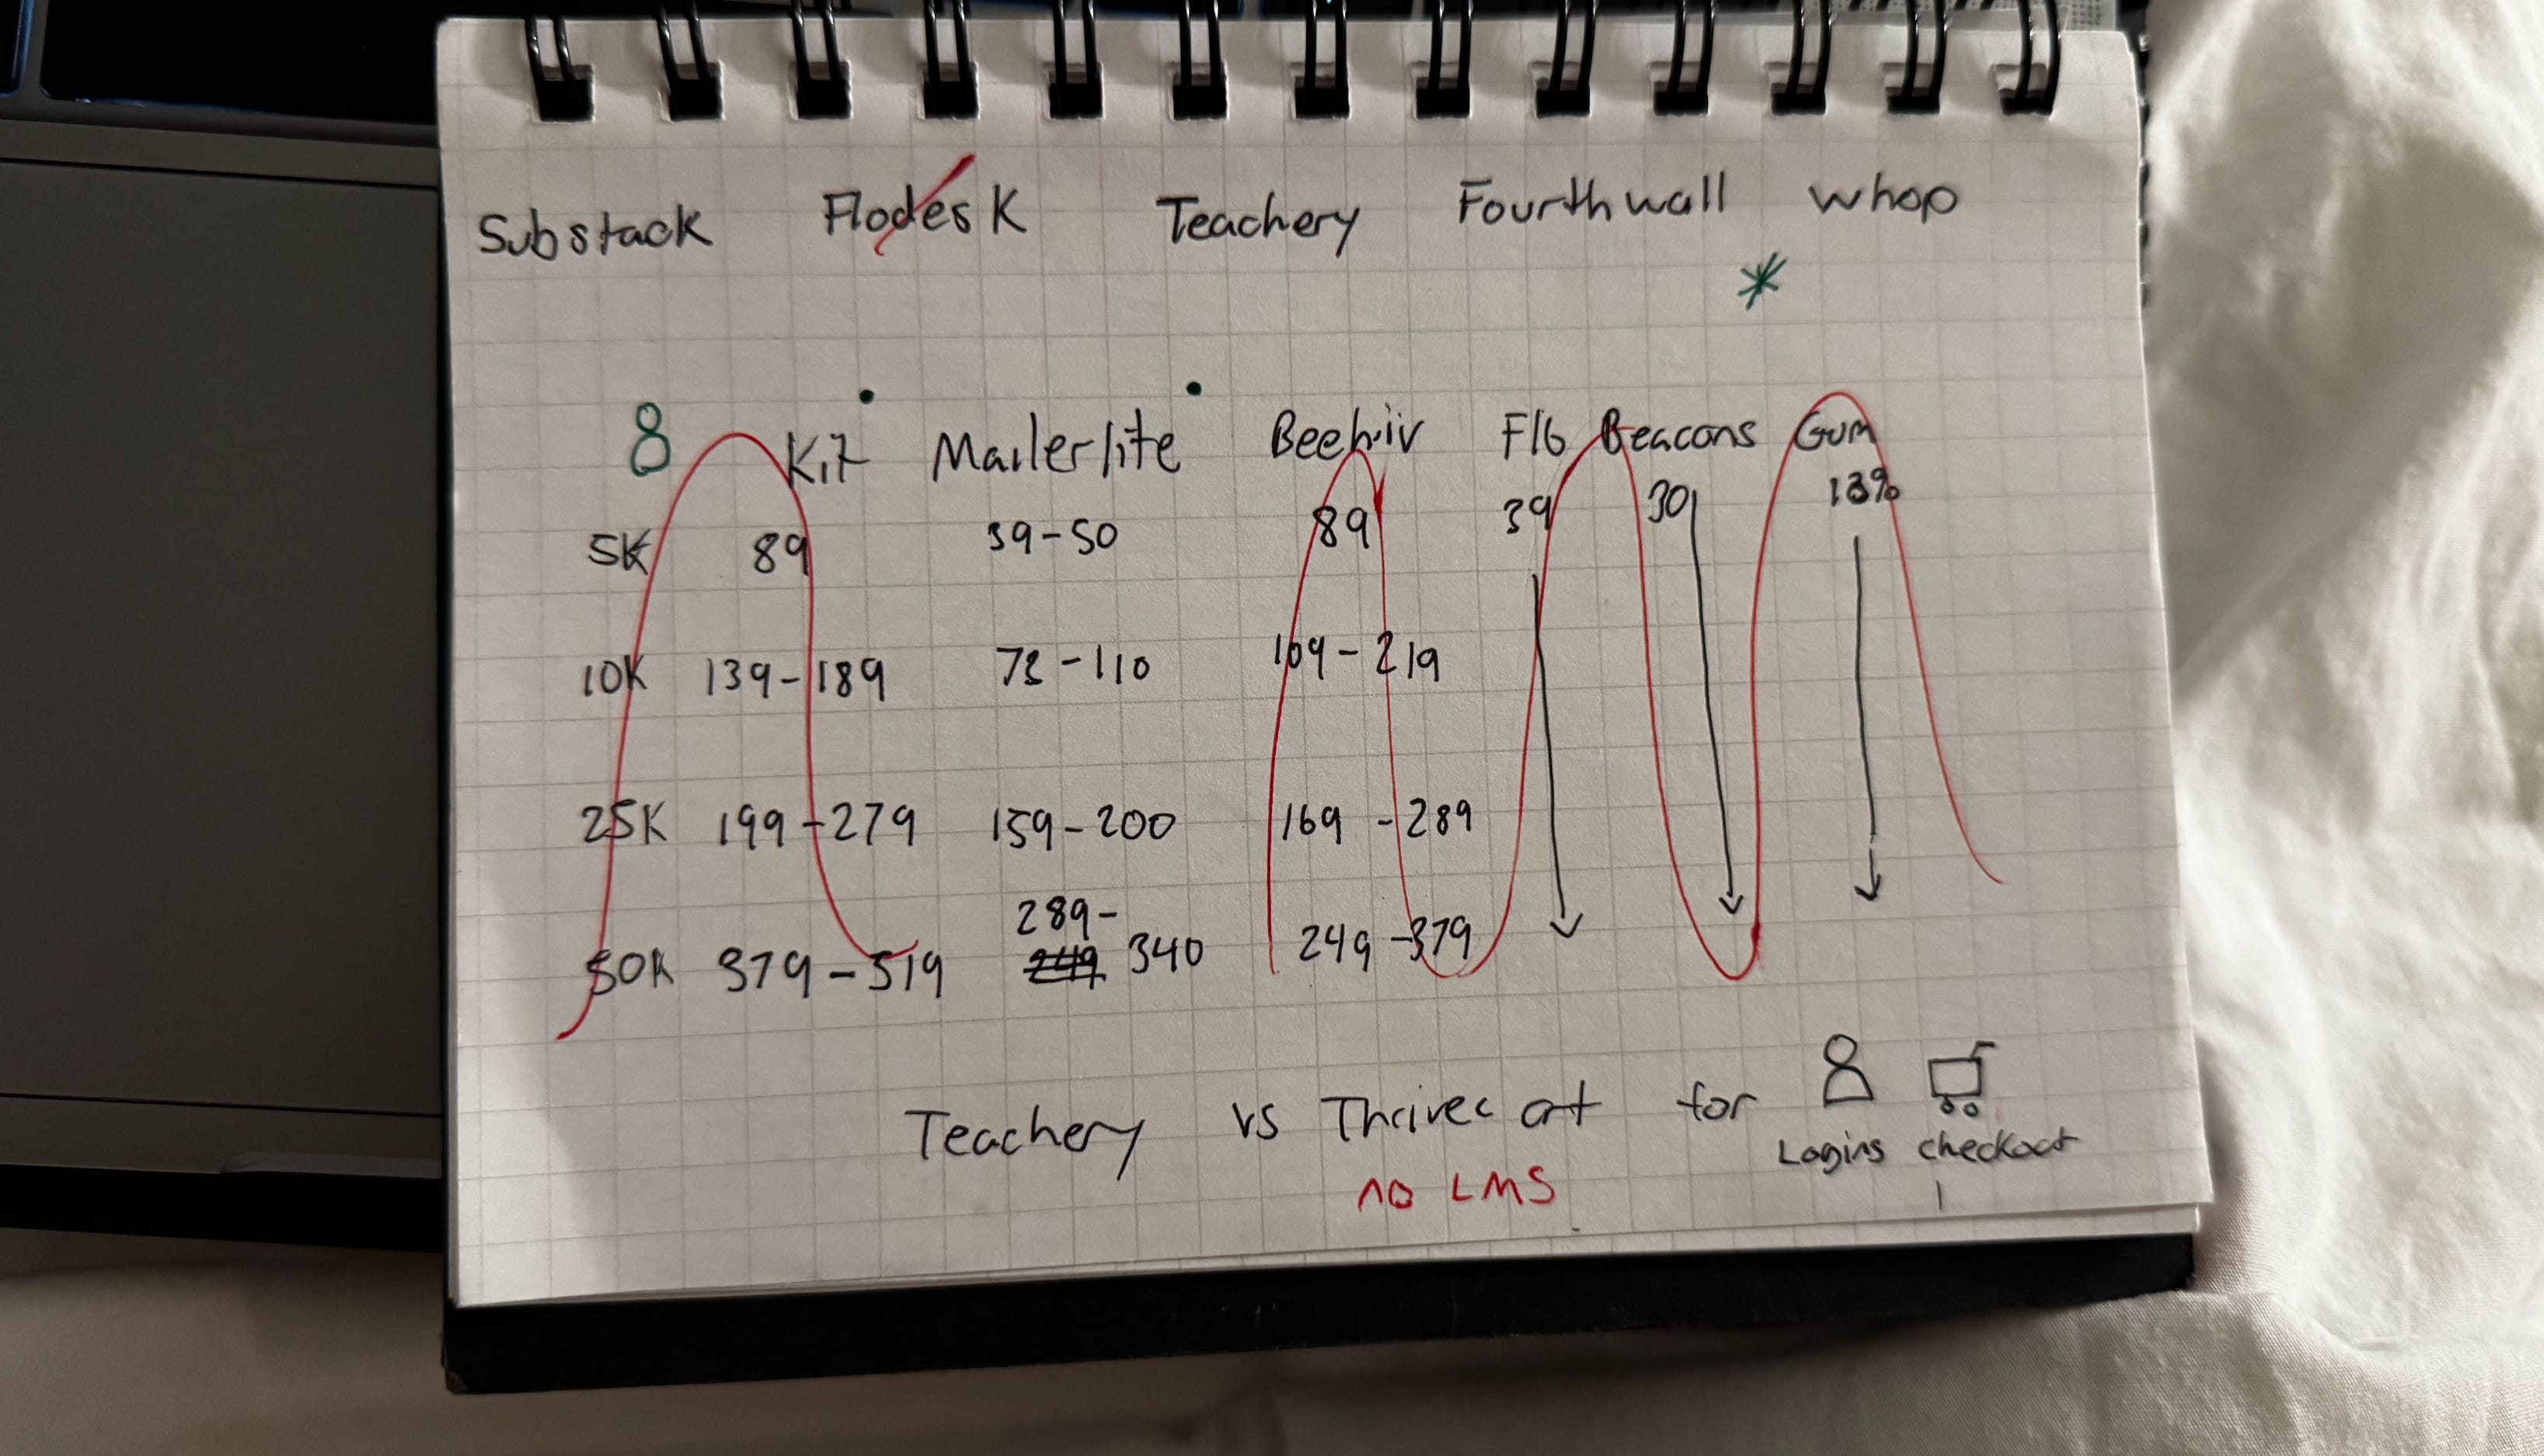 Substack Flodesk Teachery Fourthwall whop
*
8 Kit Mailerlite Beehiiv F16 Beacons Gum
5K 89 39-50 89 39 30 13%
10K 139-189 73-110 109-219
25K 199-279 159-200 169-289
289-
50K 379-519 249 340 249-379
Teachery vs Thrivecart for
Logins checkout
no LMS